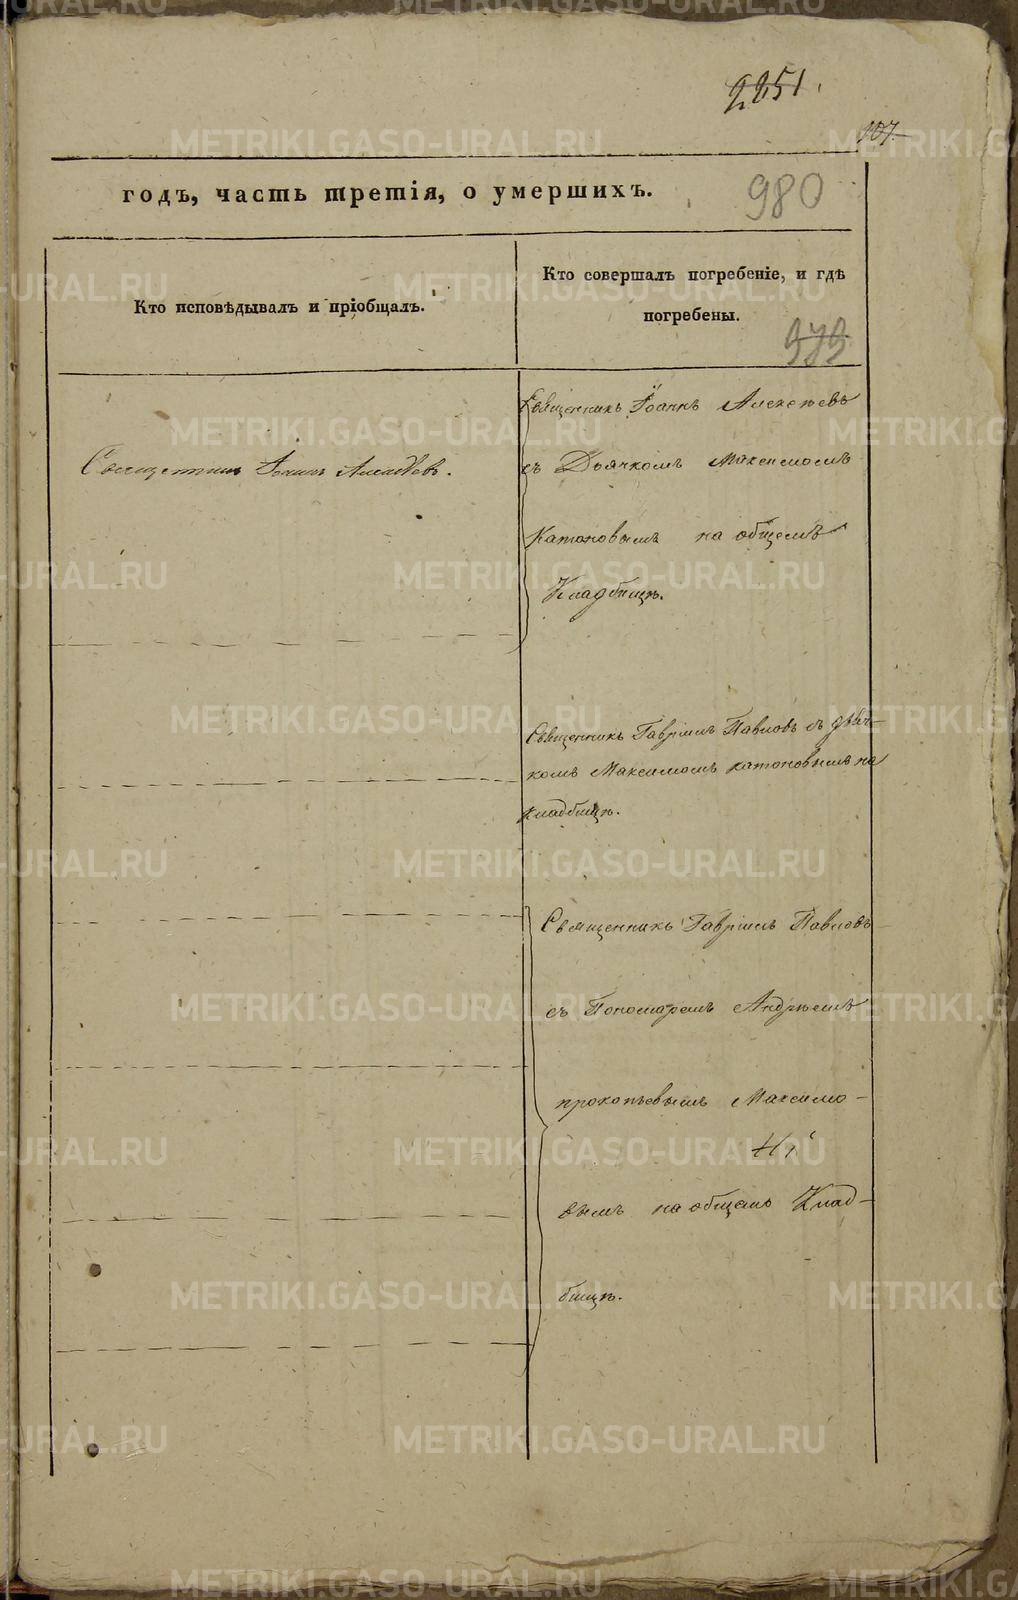 2251.
107.
годъ, часть третія, о умершихъ.
980
Кто исповѣдывалъ и пріобщалъ.
Кто совершалъ погребеніе, и гдѣ
погребены.
979
Священникъ Іоаннъ Алексѣевъ
Священникъ Іоаннъ Алексѣевъ.
съ Дьячкомъ Максимомъ
Катоновымъ на общемъ
Кладбищѣ.
Священникъ Гавріилъ Павловъ съ дьяч-
комъ Максимомъ Катоновымъ на
Кладбищѣ.
Священникъ Гавріилъ Павловъ
съ Пономаремъ Андрѣемъ
прокопьевымъ Максимо-
вымъ на общемъ Клад-
бищѣ.
METRIKI.GASO-URAL.RU